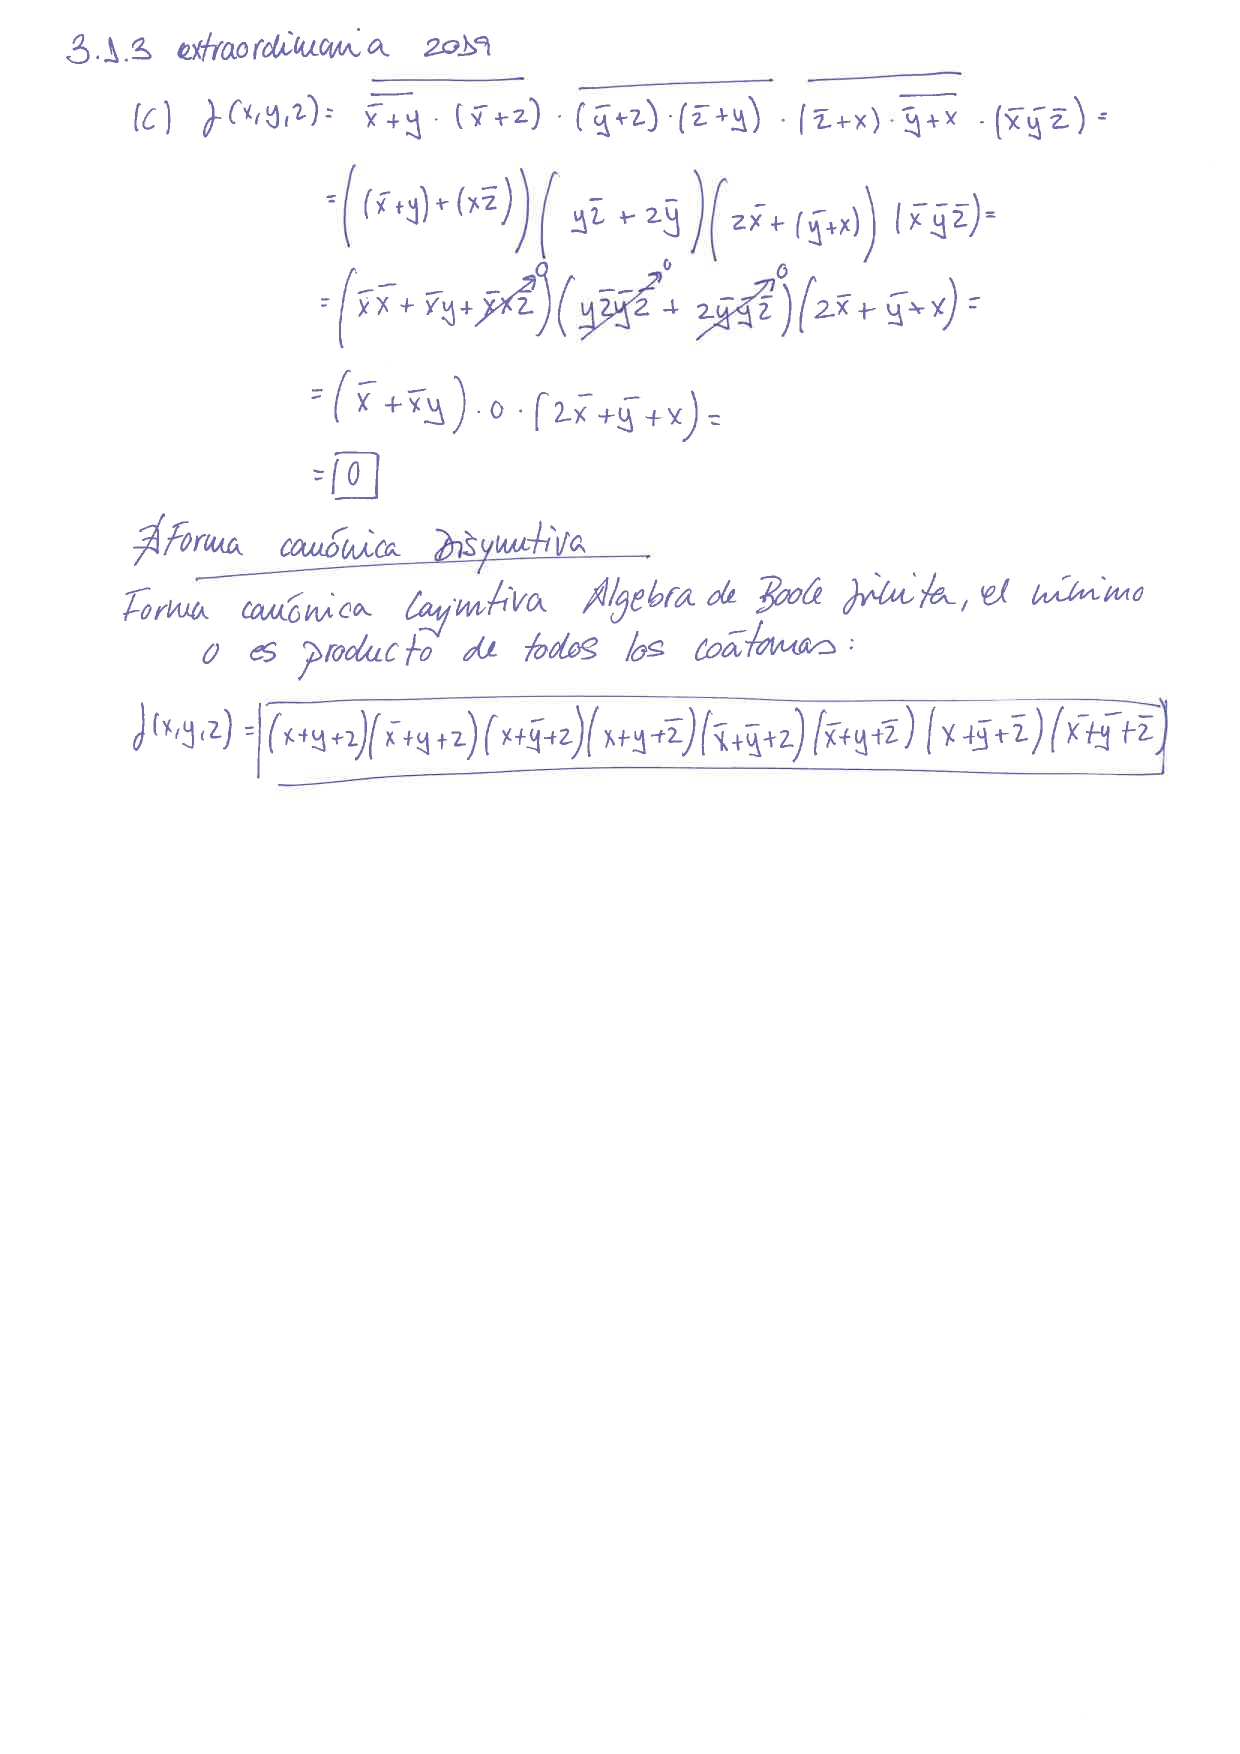 3.1.3 extraordinaria 2019
(c) f(x,y,z) = \overline{\overline{x̄+y} · (x̄+z)} · \overline{(ȳ+z)·(z̄+y)} · \overline{(z̄+x) · \overline{ȳ+x}} · (x̄ȳz̄) =
= ((x̄+y)+(xz̄)) (yz̄ + zȳ) (zx̄ + (ȳ+x)) (x̄ȳz̄) =
= (x̄x̄ + x̄y + x̄xz̄ 0) (yz̄ȳz̄ 0 + zȳȳz̄ 0) (zx̄ + ȳ + x) =
= (x̄ + x̄y) · 0 · (zx̄ + ȳ + x) =
= 0
∄ Forma canónica Disyuntiva
Forma canónica Conjuntiva Algebra de Boole finita, el mínimo
0 es producto de todos los coátomos:
f(x,y,z) = (x+y+z)(x̄+y+z)(x+ȳ+z)(x+y+z̄)(x̄+ȳ+z)(x̄+y+z̄)(x+ȳ+z̄)(x̄+ȳ+z̄)